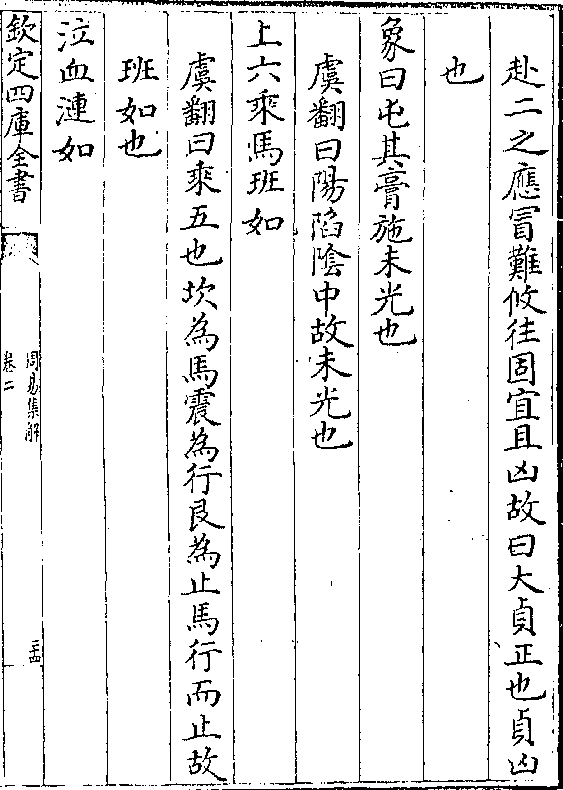 赴二之應冒難攸往固宜且凶故曰大貞正也貞凶
也
象曰屯其膏施未光也
虞翻曰陽陷陰中故未光也
上六乘馬班如
虞翻曰乘五也坎為馬震為行艮為止馬行而止故
班如也
泣血漣如
欽定四庫全書
周易集解
卷二